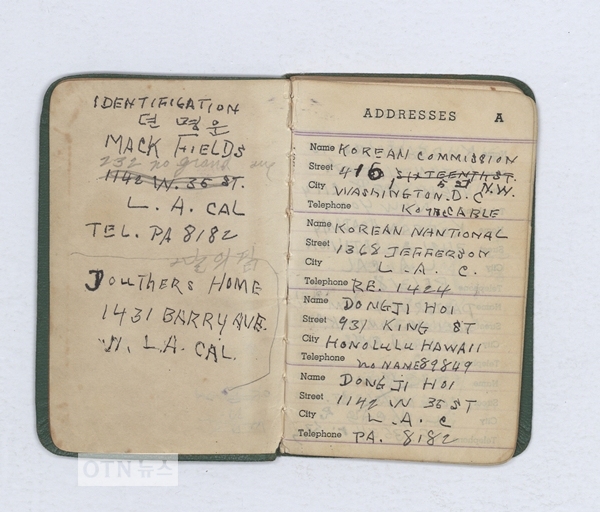 IDENTIFIGATION
뎐 명운
MACK FIELDS
232 no grand ave
1142 W. 35 ST.
L. A. CAL
TEL. PA 8182
DOUTHERS HOME
1431 BARRY AVE.
W. L.A. CAL.
ADDRESSES A
Name KOREAN COMMISSION
Street 416 SIXTEENTH ST.
City WASHINGTON. D. C N.W.
Telephone KORICABLE
Name KOREAN NANTIONAL
Street 1368 JEFFERSON
City L. A. C.
Telephone RE. 1424
Name DONGJI HOI
Street 931 KING ST
City HONOLULU HAWAII
Telephone NO NANE89849
Name DONGJI HOI
Street 1142 W 35 ST
City L. A. C
Telephone PA. 8182
OTN 뉴스